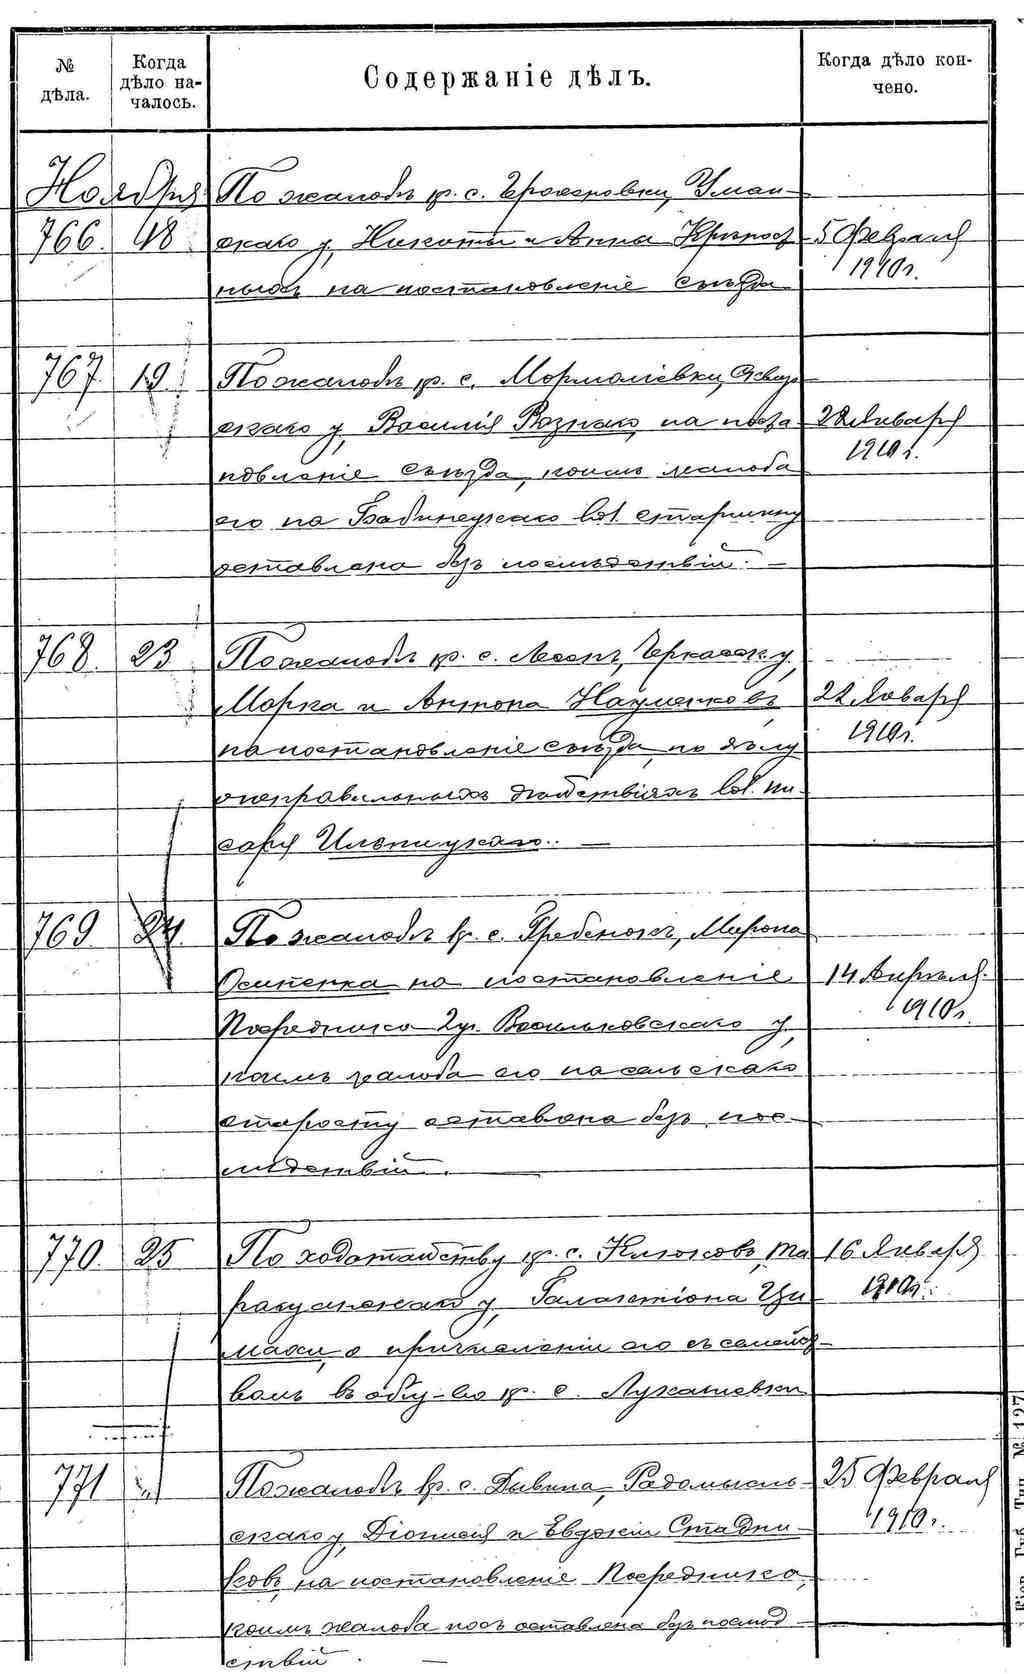 № дѣла.
Когда дѣло на-
чалось.
Содержаніе дѣлъ.
Когда дѣло кон-
чено.
Ноября
766. 18
По жалобѣ кр. с. Ерошовки, Уман-
скаго у, Никиты и Анны
на постановленіе съѣзда
5 Февраля
1910 г.
767. 19
По жалобѣ кр. с. Мормоліевки, Сквир-
скаго у, Василія Вознаго, на поста-
новленіе съѣзда, коимъ жалоба
его на Бабинецкаго вол. старшину
оставлена безъ послѣдствій. —
22 Января
1910 г.
768. 23
По жалобѣ кр. с. Лесокъ, Черкасск. у,
Марка и Антона Науменковъ,
на постановленіе съѣзда, по дѣлу
о неправильныхъ дѣйствіяхъ вол. пи-
саря Ильницкаго. —
22 Января
1910 г.
769 24
По жалобѣ кр. с. Гребенокъ, Мирона
Осипенка на постановленіе
Посредника 2 уч. Васильковскаго у,
коимъ жалоба его на сельскаго
старосту оставлена безъ пос-
лѣдствій.
14 Апрѣля
1910 г.
770. 25
По ходатайству кр. с. Клюковъ, Та-
ращанскаго у, Галактіона Ци-
махи, о причисленіи его съ семейст-
вомъ въ общ-во кр. с. Лукашевки
16 Января
1910 г.
771 "
По жалобѣ кр. с. Дывина, Радомысль-
скаго у, Діонисія и Евдокіи Стадни-
ковъ, на постановленіе Посредника,
коимъ жалоба ихъ оставлена безъ послѣд-
ствій. —
25 Февраля
1910 г.
Кіев. Губ. Тип. № 127